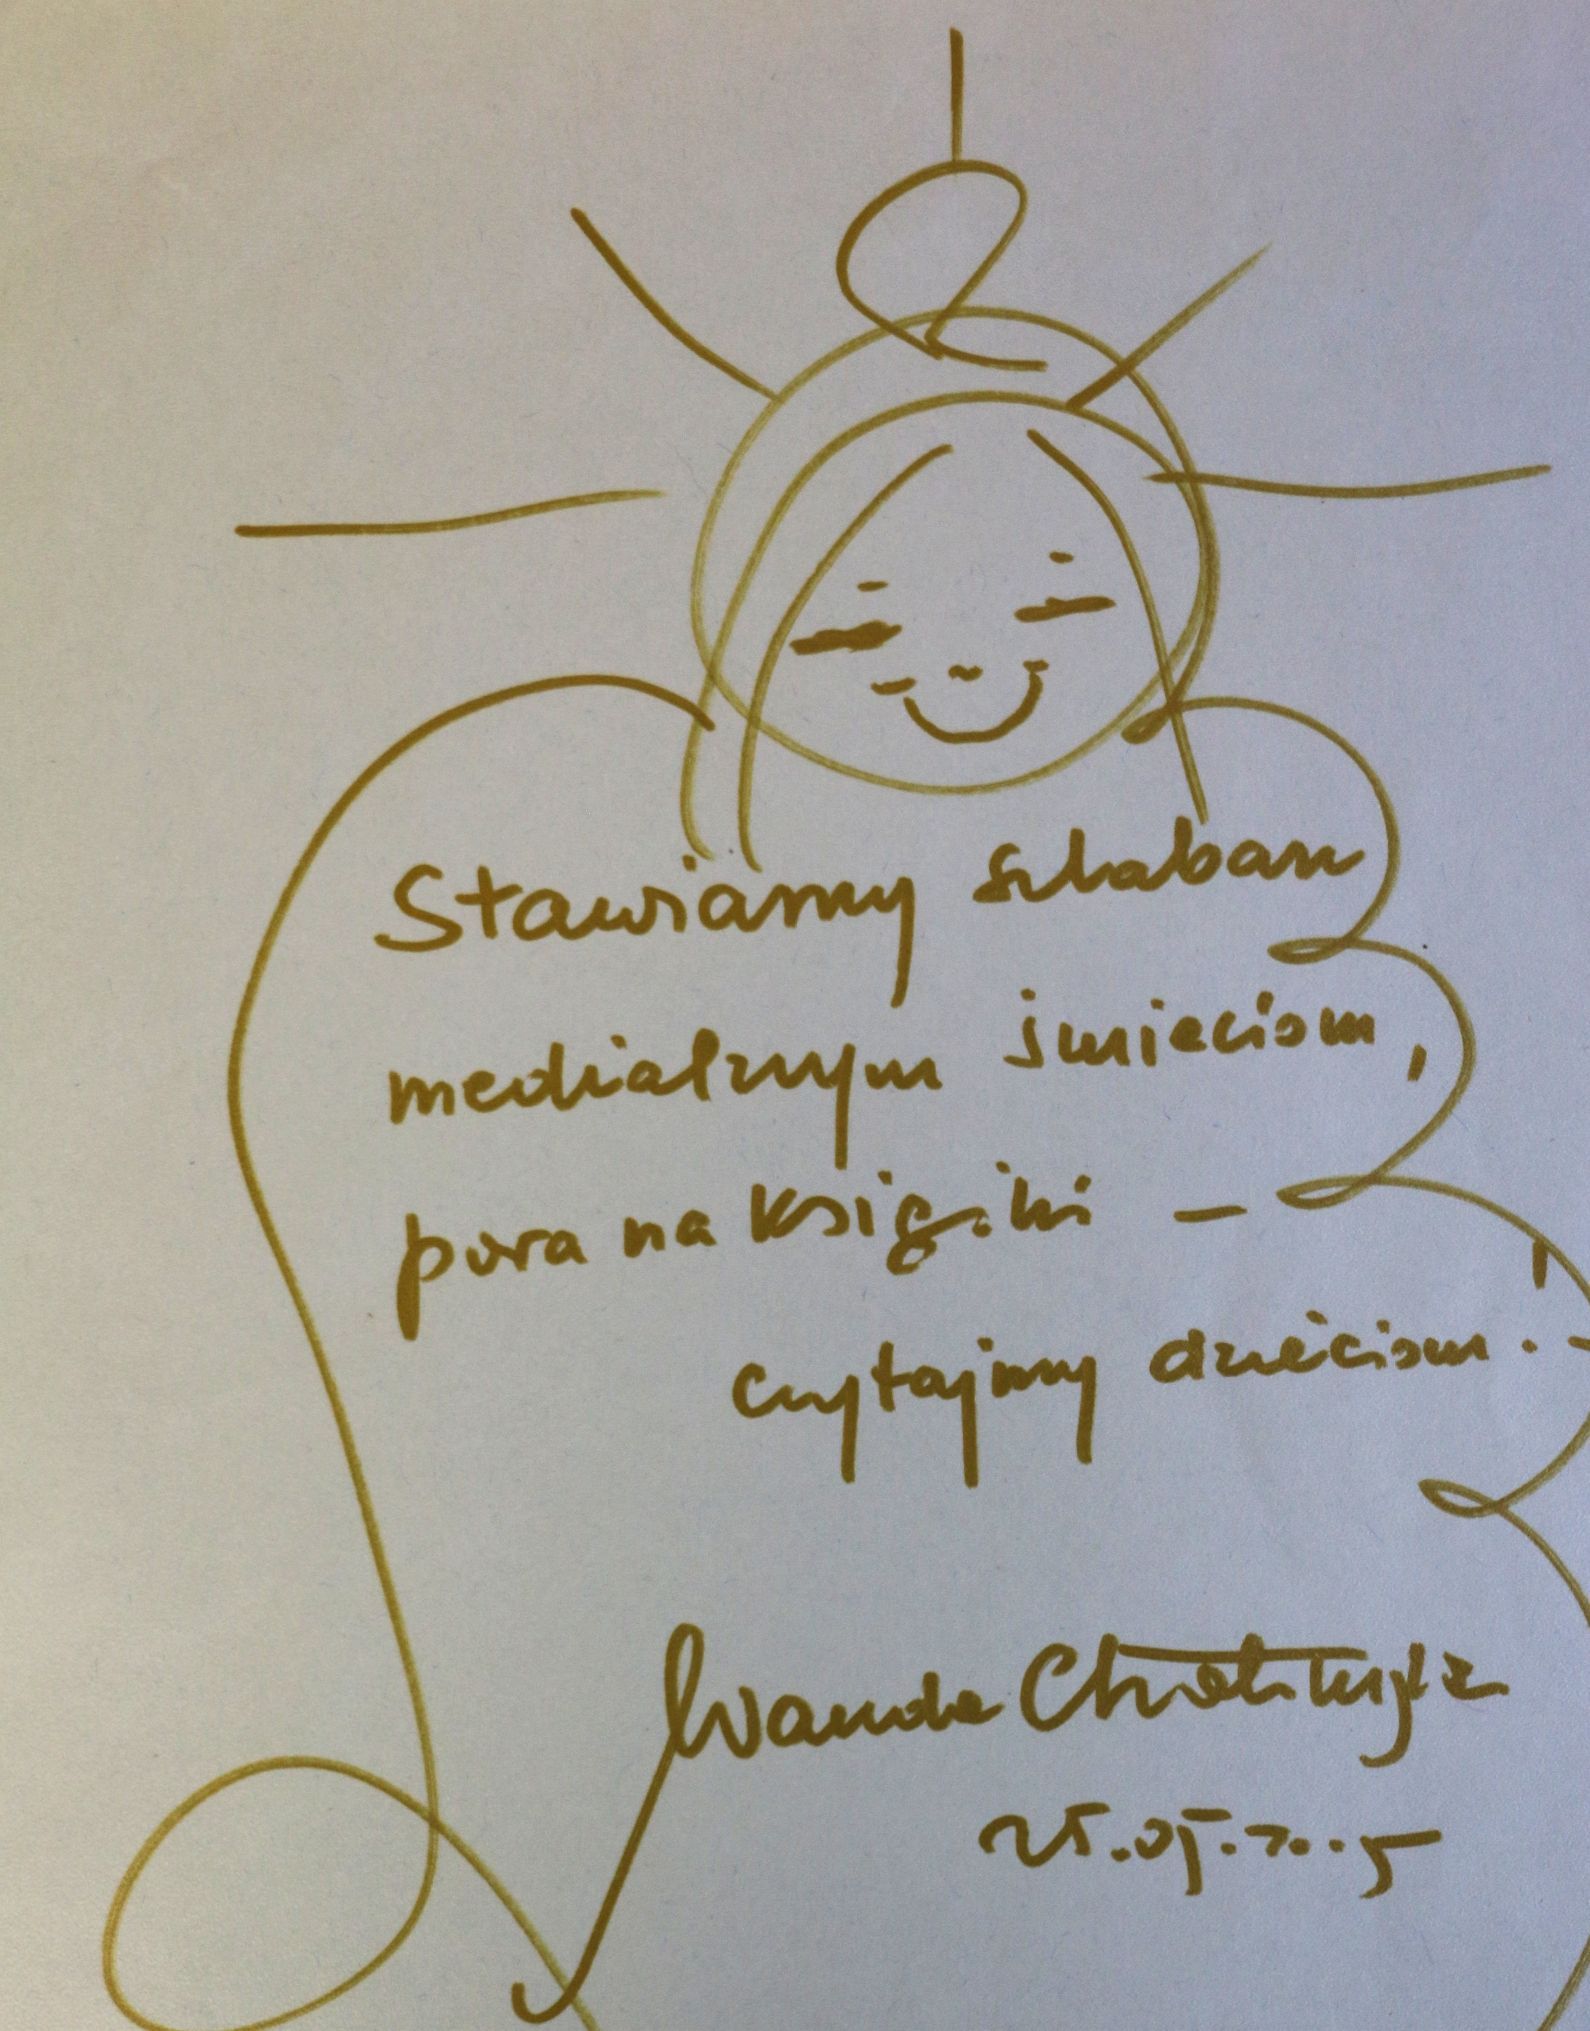 Stawiamy szlaban
medialnym śmieciom,
pora na książki –
czytajmy dzieciom.
Wanda Chotomska
25.05.2005